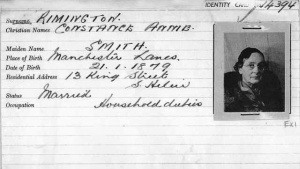 IDENTITY CARD
Surname RIMINGTON.
Christian Names CONSTANCE ANNIE.
Maiden Name SMITH.
Place of Birth Manchester Lancs.
Date of Birth 21.1.1879
Residential Address 13 King Street
S. Helier
Status Married
Occupation Household duties